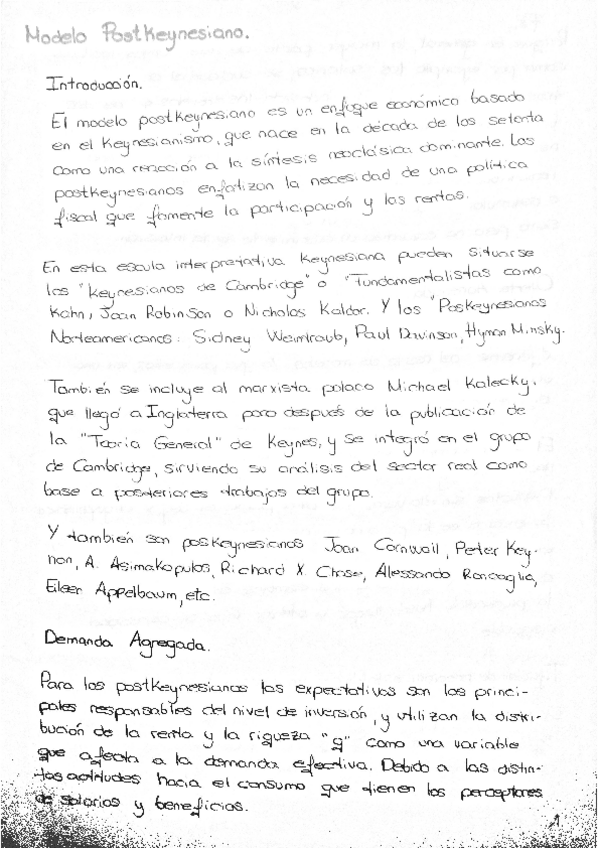 Modelo Postkeynesiano.
Introducción.
El modelo postkeynesiano es un enfoque económico basado
en el Keynesianismo, que nace en la década de los setenta
como una reacción a la síntesis neoclásica dominante. Los
postkeynesianos enfatizan la necesidad de una política
fiscal que fomente la participación y las rentas.
En esta escuela interpretativa Keynesiana pueden situarse
los "Keynesianos de Cambridge" o "Fundamentalistas como
Kahn, Joan Robinson o Nicholas Kaldor. Y los "Poskeynesianos
Norteamericanos: Sidney Weintraub, Paul Davinson, Hyman Minsky.
También se incluye al marxista polaco Michael Kalecky,
que llegó a Inglaterra poco después de la publicación de
la "Teoría General" de Keynes, y se integró en el grupo
de Cambridge, sirviendo su análisis del sector real como
base a posteriores trabajos del grupo.
Y también son poskeynesianos Joan Cornwail, Peter Key-
non, A. Asimakopulos, Richard X. Chase, Alessandro Roncaglia,
Eileer Appelbaum, etc.
Demanda Agregada.
Para los postkeynesianos las expectativas son las princi-
pales responsables del nivel de inversión, y utilizan la distri-
bución de la renta y la riqueza "q" como una variable
que afecta a la demanda efectiva. Debido a las distin-
tas actitudes hacia el consumo que tienen los perceptores
de salarios y beneficios.
1